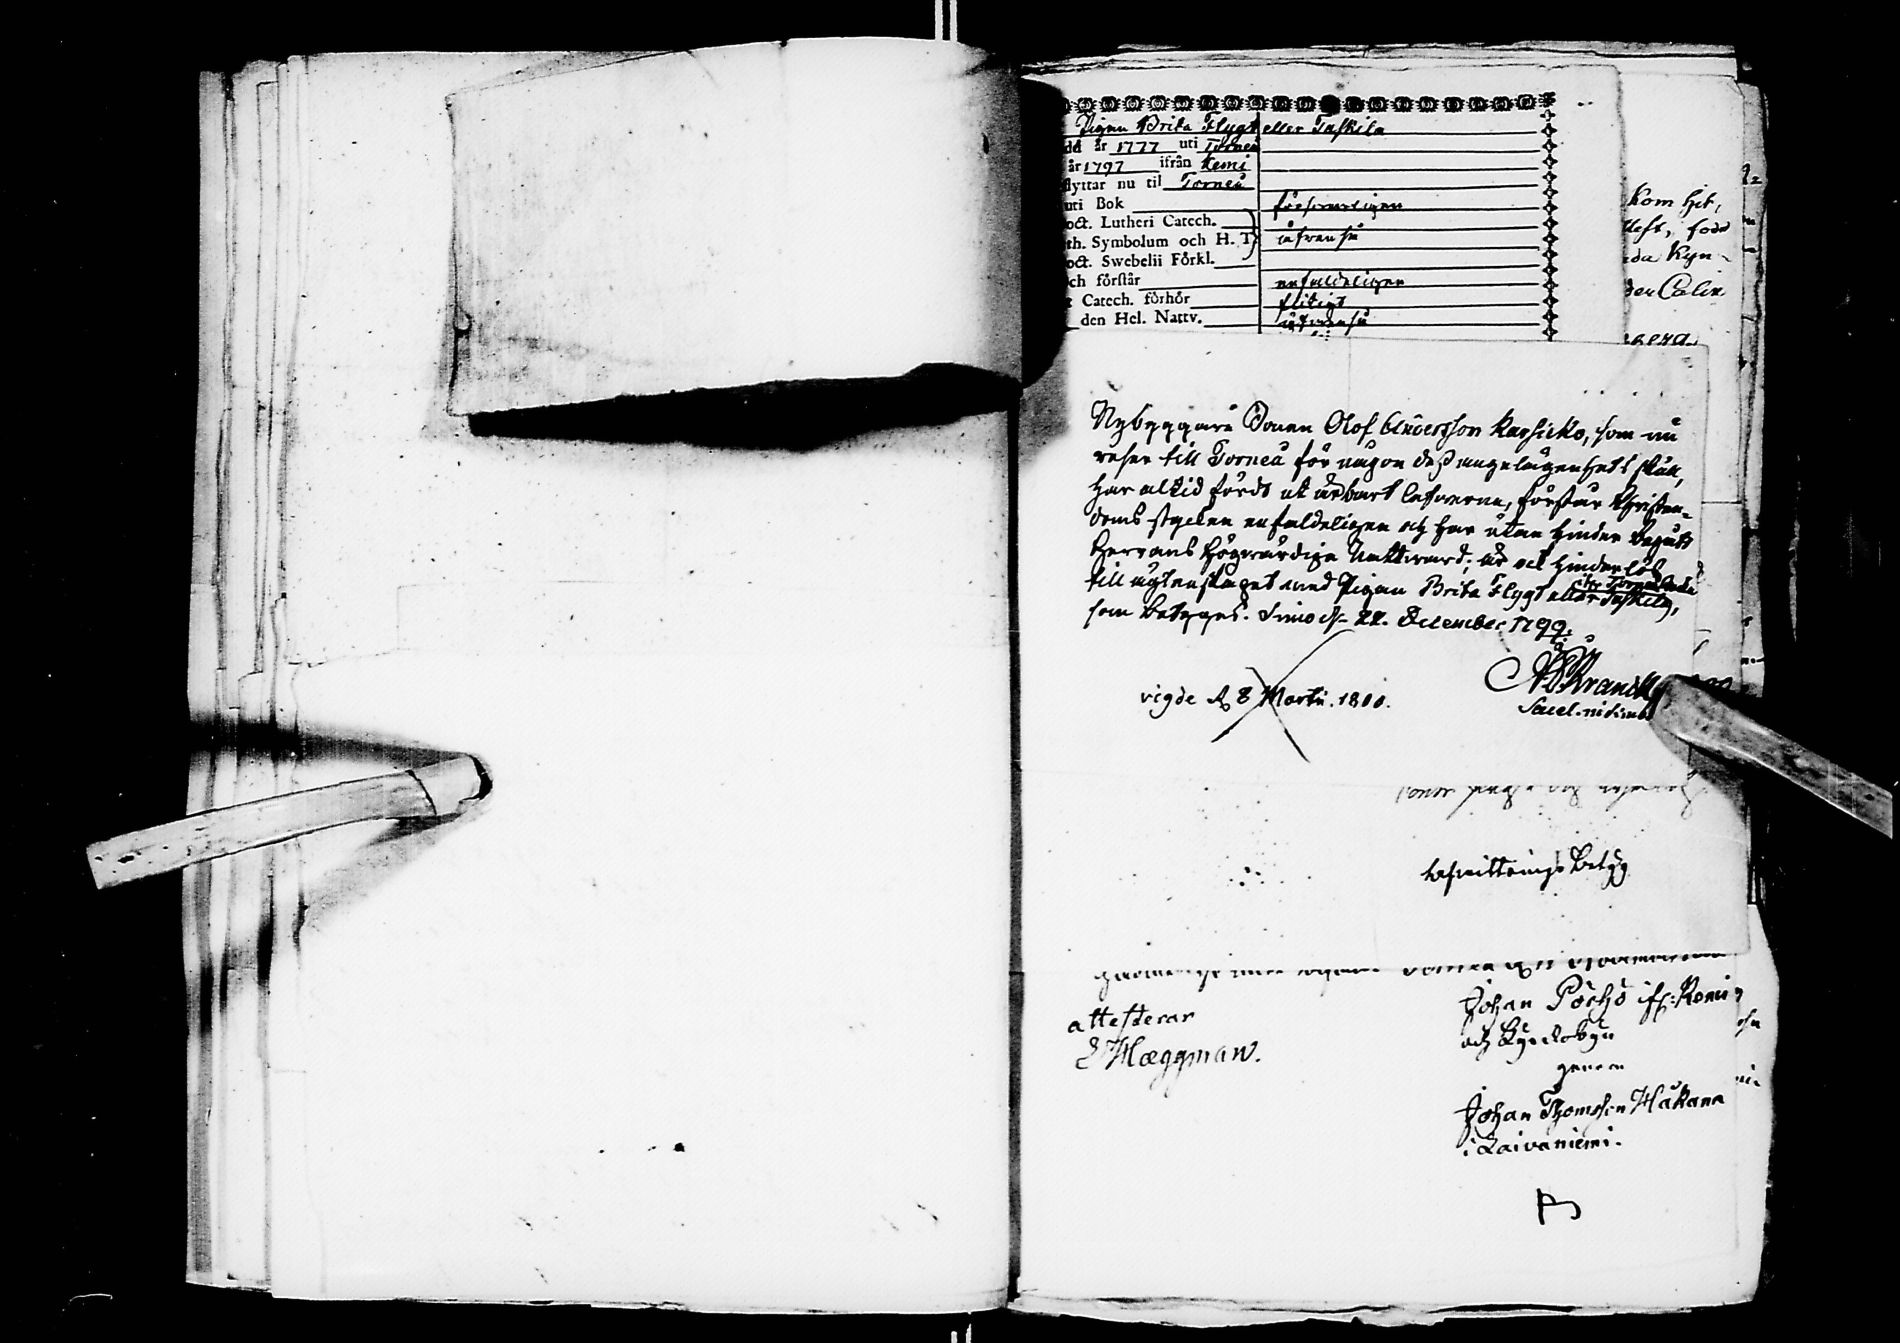 Pigan Brita Flygt eller Taskila
dd år 1777 uti Torneå
år 1797 ifrån Kemi
flyttar nu til Torneå
uti Bok försvarligen
oct. Lutheri Catech.
th. Symbolum och H. T. utan
oct. Swebelii Förkl.
ch förstår enfaldeligen
Catech. förhör flitigt
den Hel. Nattv.
Kom hit,
född
da Kyn-
Nybyggare Sonen Olof Andersson Karsicko, som nu
reser till Torneå för någon dess angelägenhets skull,
har altid fördt et ärbart lefverne, förstår Christen-
doms stycken enfaldeligen och har utan hinder begått
Herrans Högwärdiga Nattward; är ock hinderlös
till ägtenskapet med Pigan Brita Flygt eller Taskila,
ifr Torneå
som betyges. Simo d. 22. December 1799.
vigde d 8 Martii. 1800.
Sacel.
Betyg
attesterar
E Hæggman.
Johan Pöckö ifr: Kemi
och Kyrkobyn
genom
Johan Thomsson Håkana
i Laivaniemi.